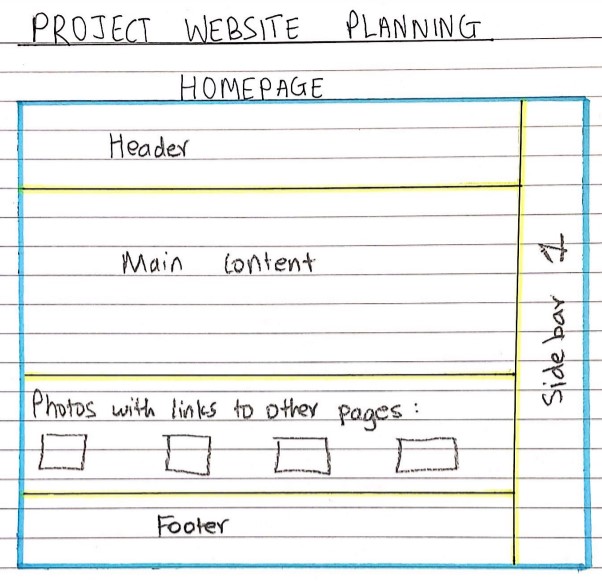 PROJECT WEBSITE PLANNING
HOMEPAGE
Header
Main Content
Sidebar 1
Photos with links to other pages :
Footer